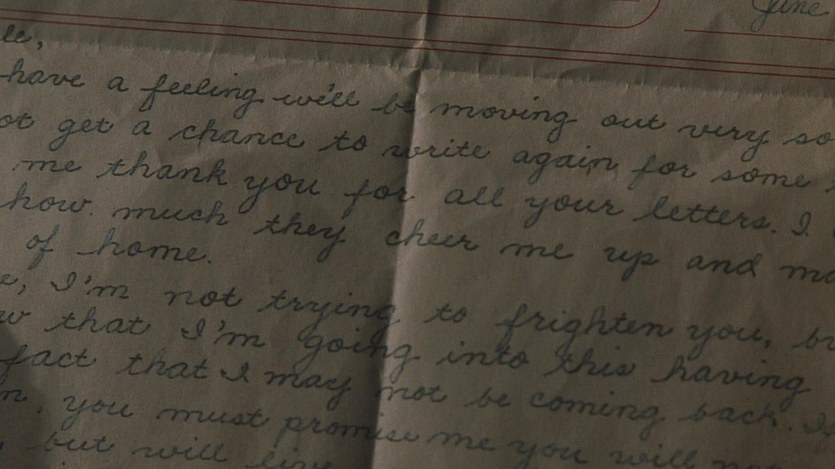 June
le,
have a feeling we'll be moving out very so
ot get a chance to write again for some
me thank you for all your letters. I
how much they cheer me up and ma
of home.
e, I'm not trying to frighten you, bu
w that I'm going into this having
fact that I may not be coming back. I
n, you must promise me you will
, but will live